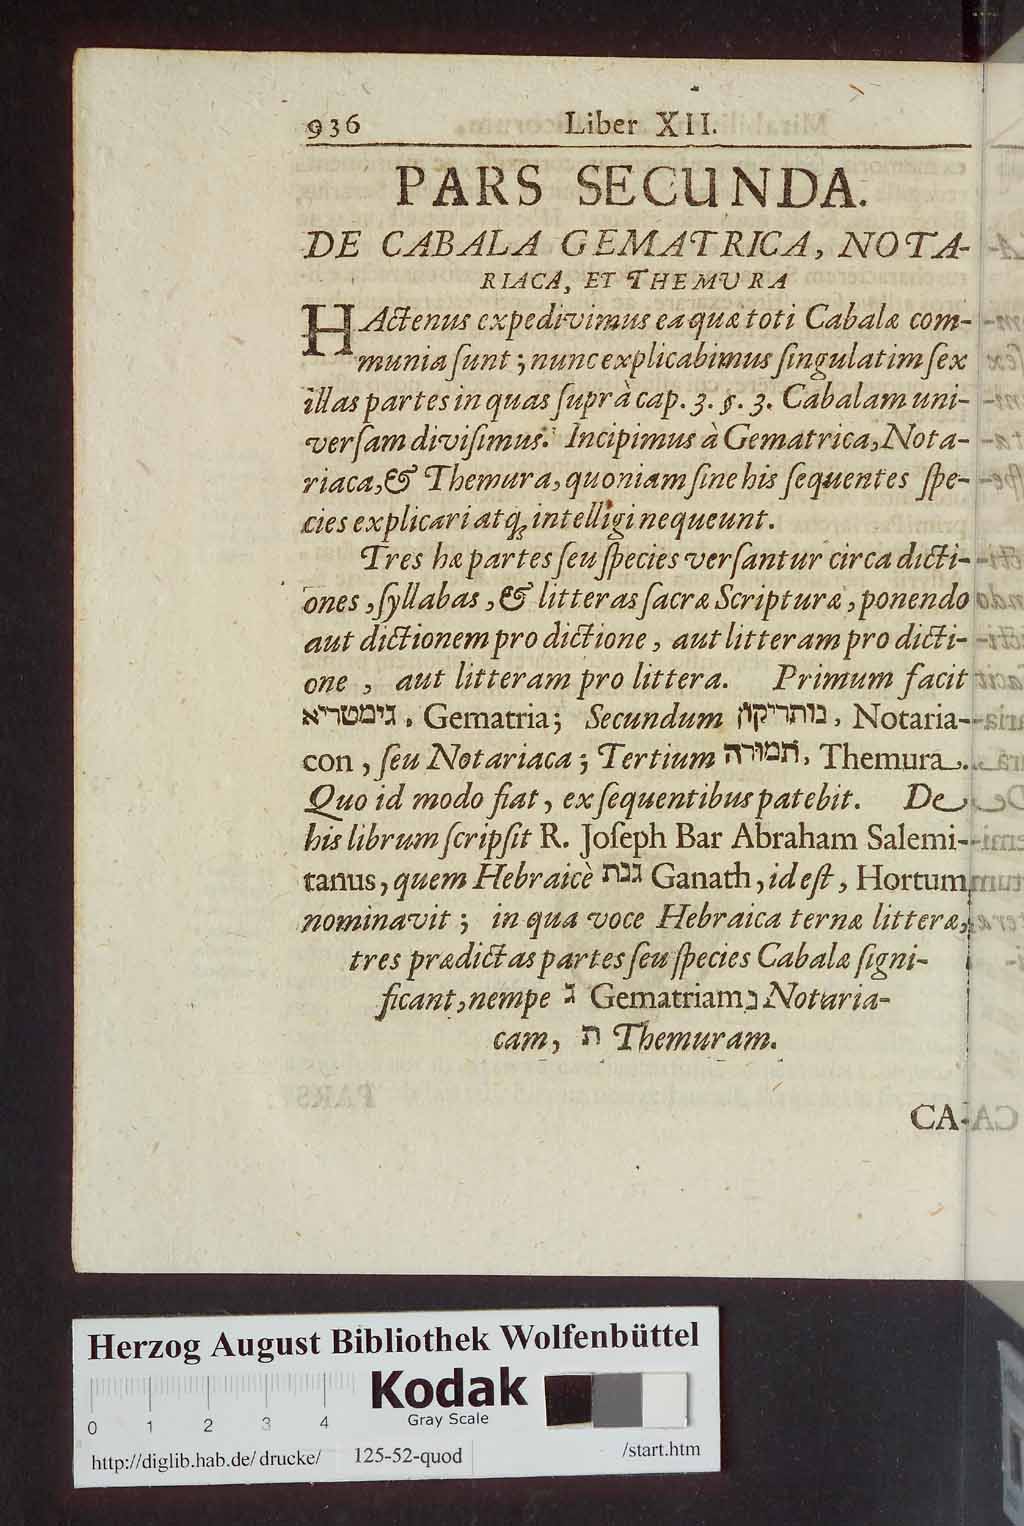 936 Liber XII.
PARS SECUNDA.
DE CABALA GEMATRICA, NOTA-
RIACA, ET THEMURA
HActenus expedivimus ea quæ toti Cabalæ com-
munia ſunt; nunc explicabimus ſingulatim ſex
illas partes in quas ſuprà cap. 3. §. 3. Cabalam uni-
verſam diviſimus. Incipimus à Gematrica, Nota-
riaca, & Themura, quoniam ſine his ſequentes ſpe-
cies explicari atq; intelligi nequeunt.
Tres hæ partes ſeu ſpecies verſantur circa dicti-
ones, ſyllabas, & litteras ſacræ Scripturæ, ponendo
aut dictionem pro dictione, aut litteram pro dicti-
one, aut litteram pro littera. Primum facit
גימטריא, Gematria; Secundum נותריקון, Notaria-
con, ſeu Notariaca; Tertium תמורה, Themura.
Quo id modo fiat, ex ſequentibus patebit. De
his librum ſcripſit R. Joſeph Bar Abraham Salemi-
tanus, quem Hebraicè גנת Ganath, id eſt, Hortum,
nominavit; in qua voce Hebraica ternæ litteræ,
tres prædictas partes ſeu ſpecies Cabalæ ſigni-
ficant, nempe ג Gematriam נ Notaria-
cam, ת Themuram.
CA-
Herzog August Bibliothek Wolfenbüttel
Kodak
Gray Scale
0 1 2 3 4
http://diglib.hab.de/drucke/ 125-52-quod /start.htm